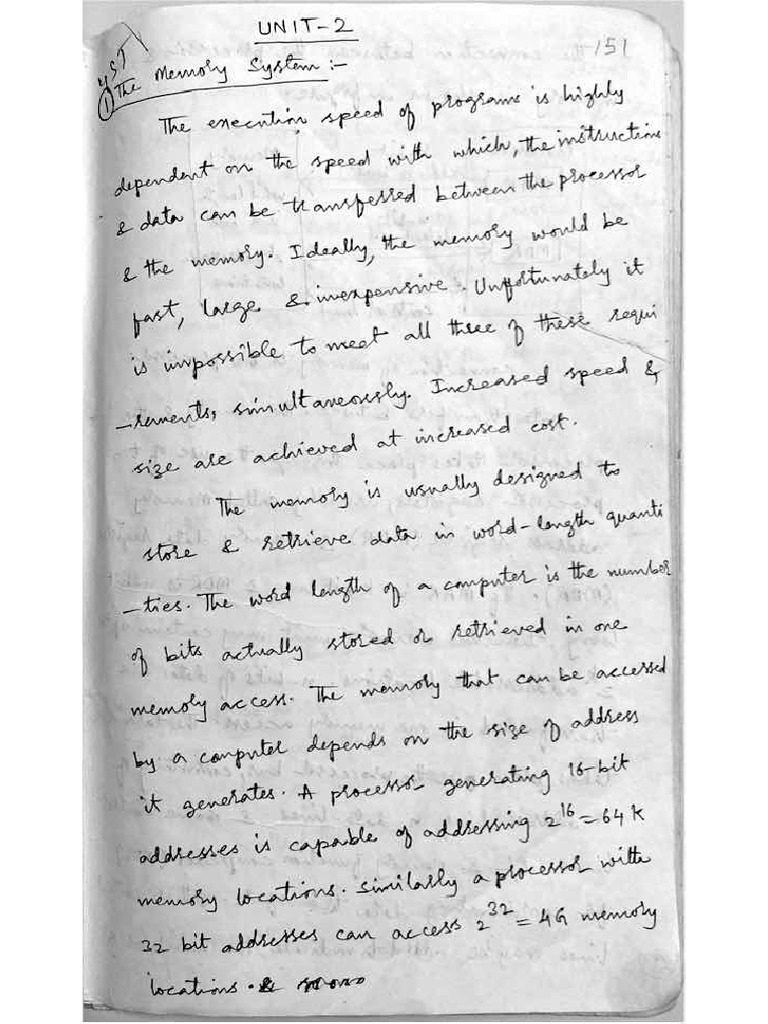 UNIT-2
151
① The Memory System :-
The execution speed of programs is highly
dependent on the speed with which, the instructions
& data can be transferred between the processor
& the memory. Ideally, the memory would be
fast, large & inexpensive. Unfortunately it
is impossible to meet all three of these requi
-rements, simultaneously. Increased speed &
size are achieved at increased cost.
The memory is usually designed to
store & retrieve data in word-length quanti
-ties. The word length of a computer is the number
of bits actually stored or retrieved in one
memory access. The memory that can be accessed
by a computer depends on the size of address
it generates. A processor generating 16-bit
addresses is capable of addressing 2¹⁶ = 64K
memory locations. Similarly a processor with
32 bit addresses can access 2³² = 4G memory
locations.